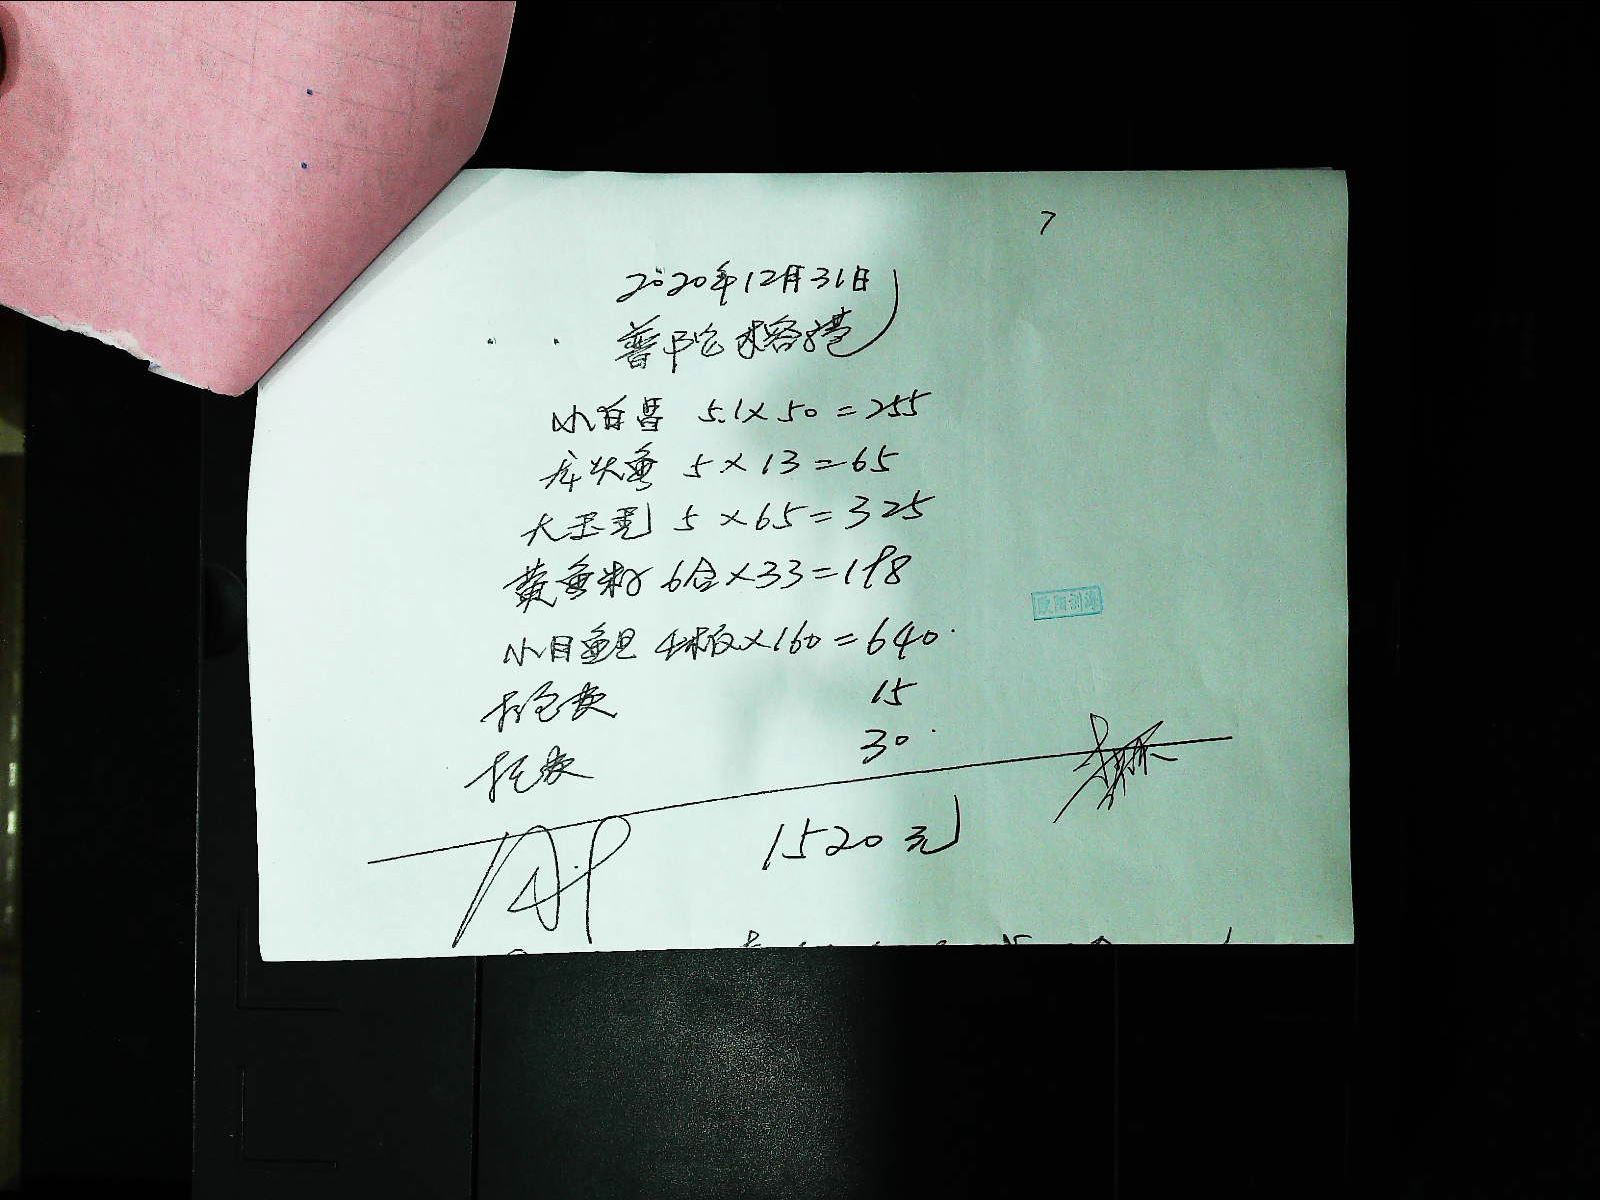 7
2020年12月31日
普陀榕港
小白昌 5.1×50=255
龙头鱼 5×13=65
大玉秃 5×65=325
黄鱼籽 6合×33=198
小目鱼 4板×160=640
打包费 15
托费 30
1520元
欧阳剑源